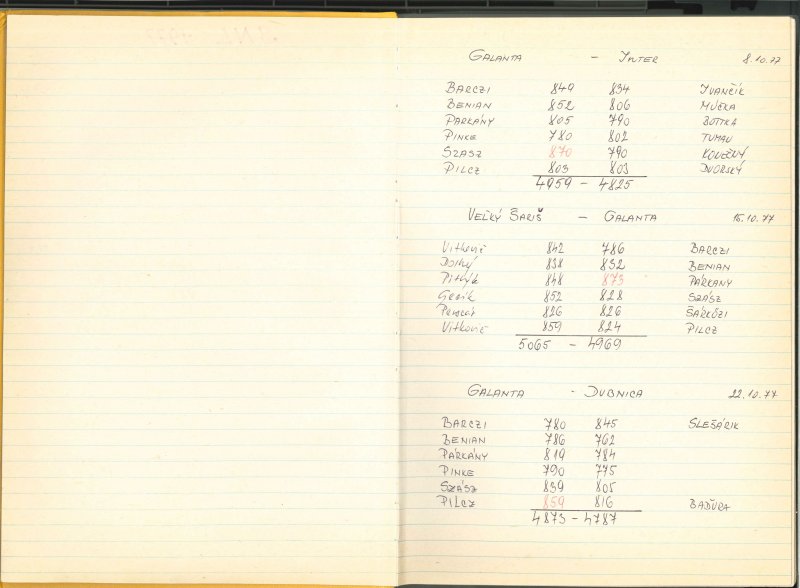 GALANTA - INTER 8.10.77
BARCZI 849 834 IVANČÍK
BENIAN 852 806 MÚČKA
PÁRKÁNY 805 790 BUTTKA
PINKE 780 802 TUMAN
SZASZ 870 790 KONEČNÝ
PILCZ 803 803 DVORSKÝ
4959 - 4825
VEĽKÝ ŠARIŠ - GALANTA 15.10.77
Vitkovič 842 786 BARCZI
838 832 BENIAN
848 873 PÁRKANY
852 828 SZÁSZ
826 826 ŠÁRKÖZI
Vitkovič 859 824 PILCZ
5065 - 4969
GALANTA - DUBNICA 22.10.77
BARCZI 780 845 SLEŠÁRIK
BENIAN 786 762
PÁRKÁNY 819 784
PINKE 790 775
SZÁSZ 839 805
PILCZ 859 816 BAĎURA
4873 - 4787